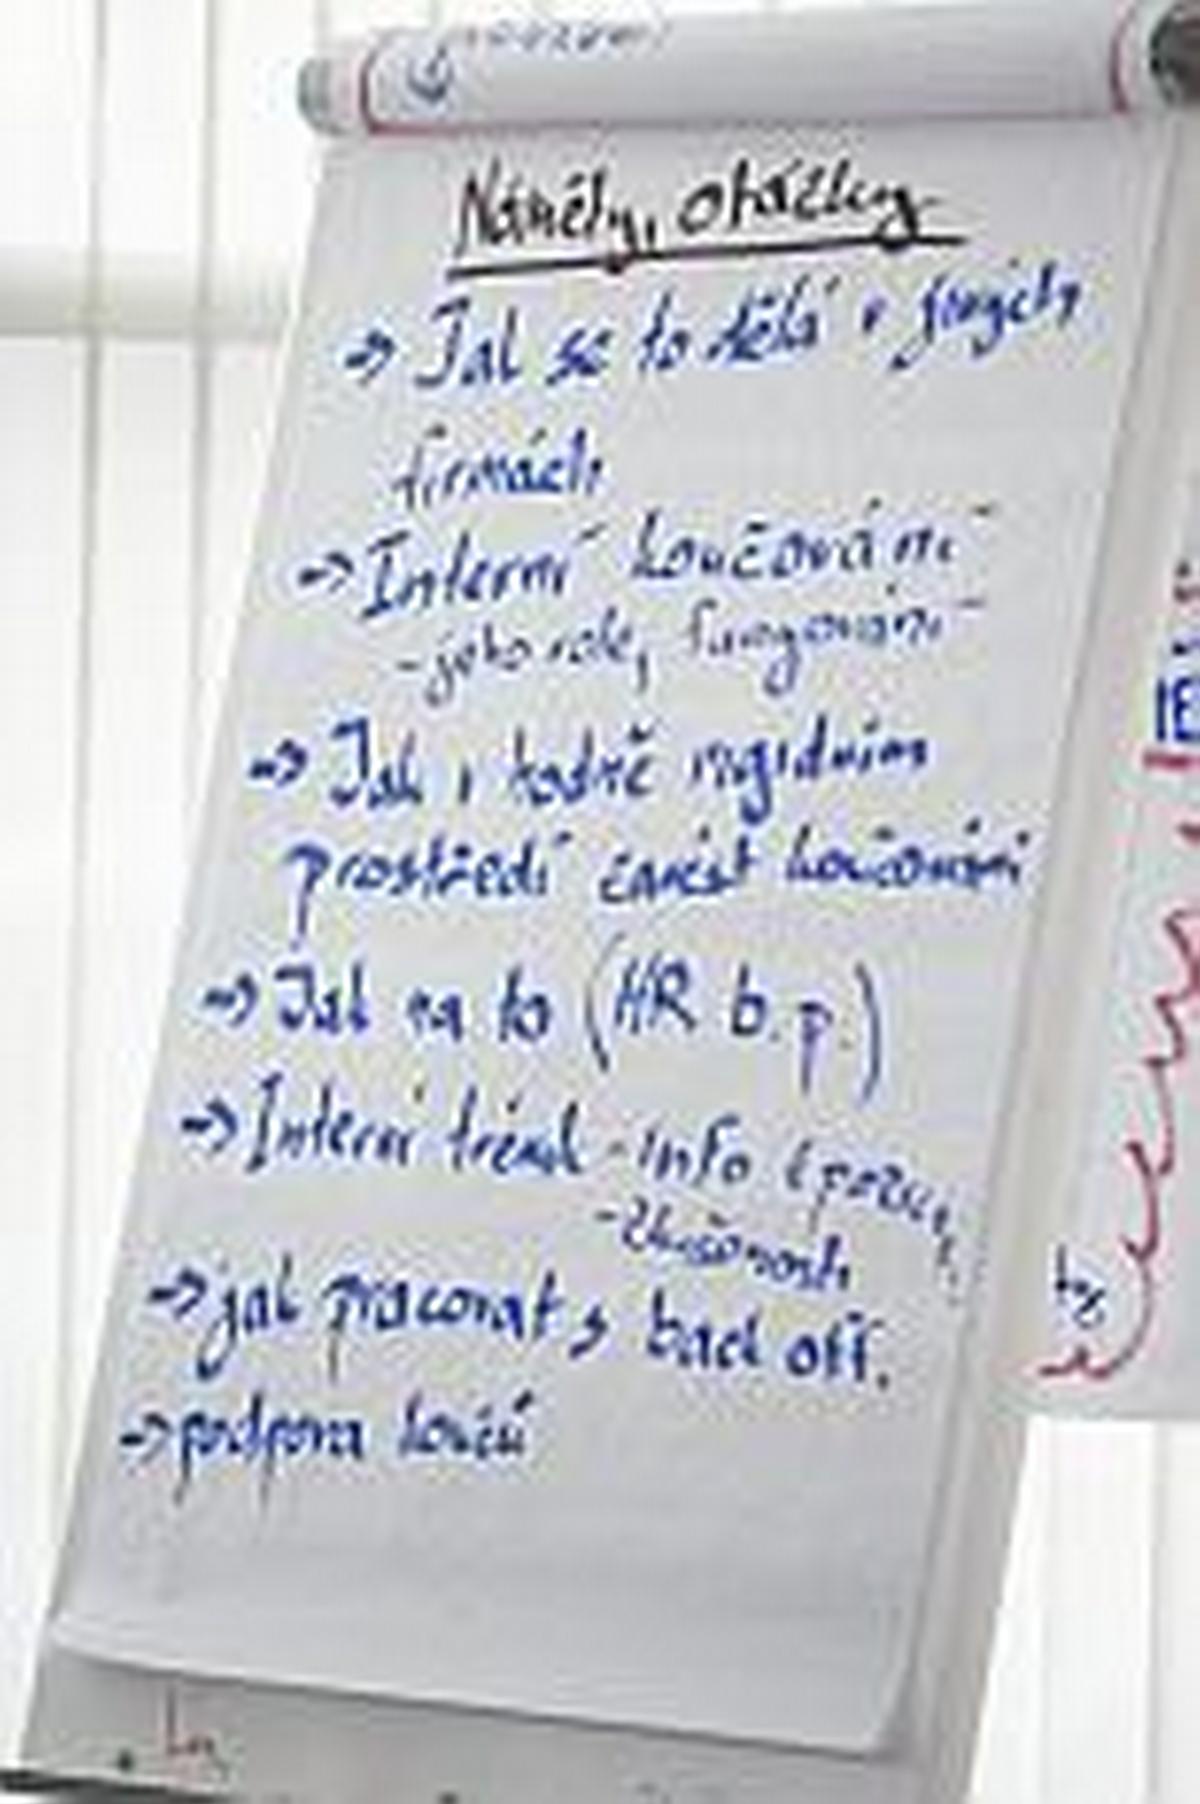 Náměty, otázky
→ Jak se to dělá v jiných
firmách
→ Interní koučování
- jeho role, fungování
→ Jak v hodně rigidním
prostředí začít koučování
→ Jak na to (HR b. p.)
→ Interní trénink - info
- zkušenosti
→ jak pracovat s back off.
→ podpora koučů